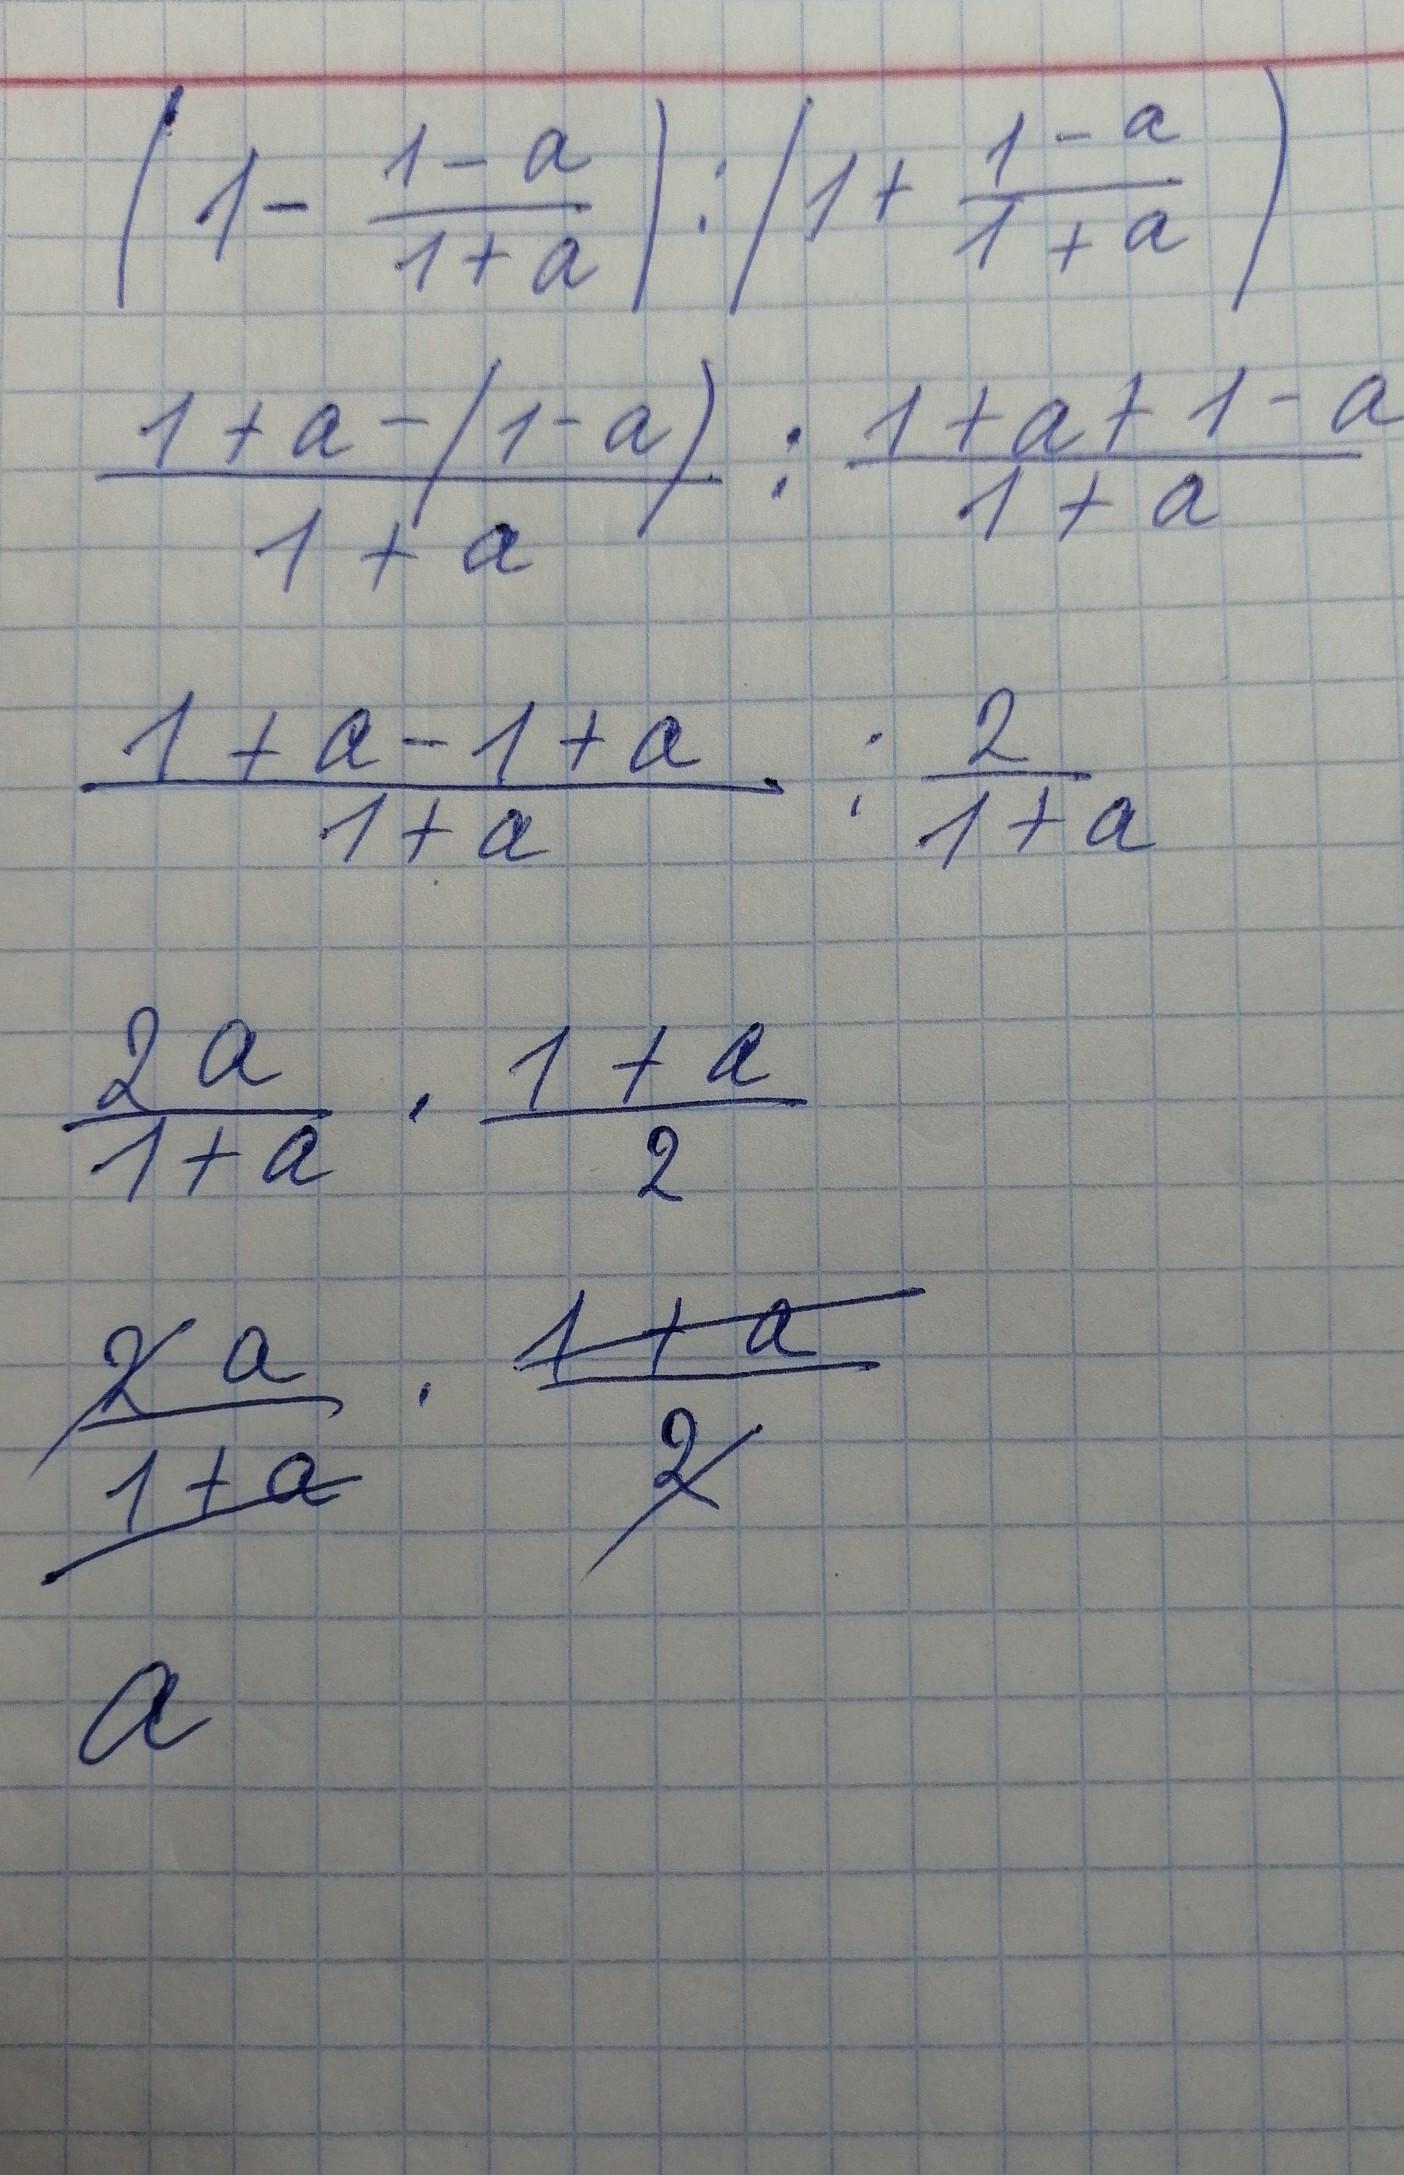 (1 - (1-a)/(1+a)) : (1 + (1-a)/(1+a))
(1+a-(1-a))/(1+a) : (1+a+1-a)/(1+a)
(1+a-1+a)/(1+a) : 2/(1+a)
2a/(1+a) · (1+a)/2
2a/(1+a) · (1+a)/2
a